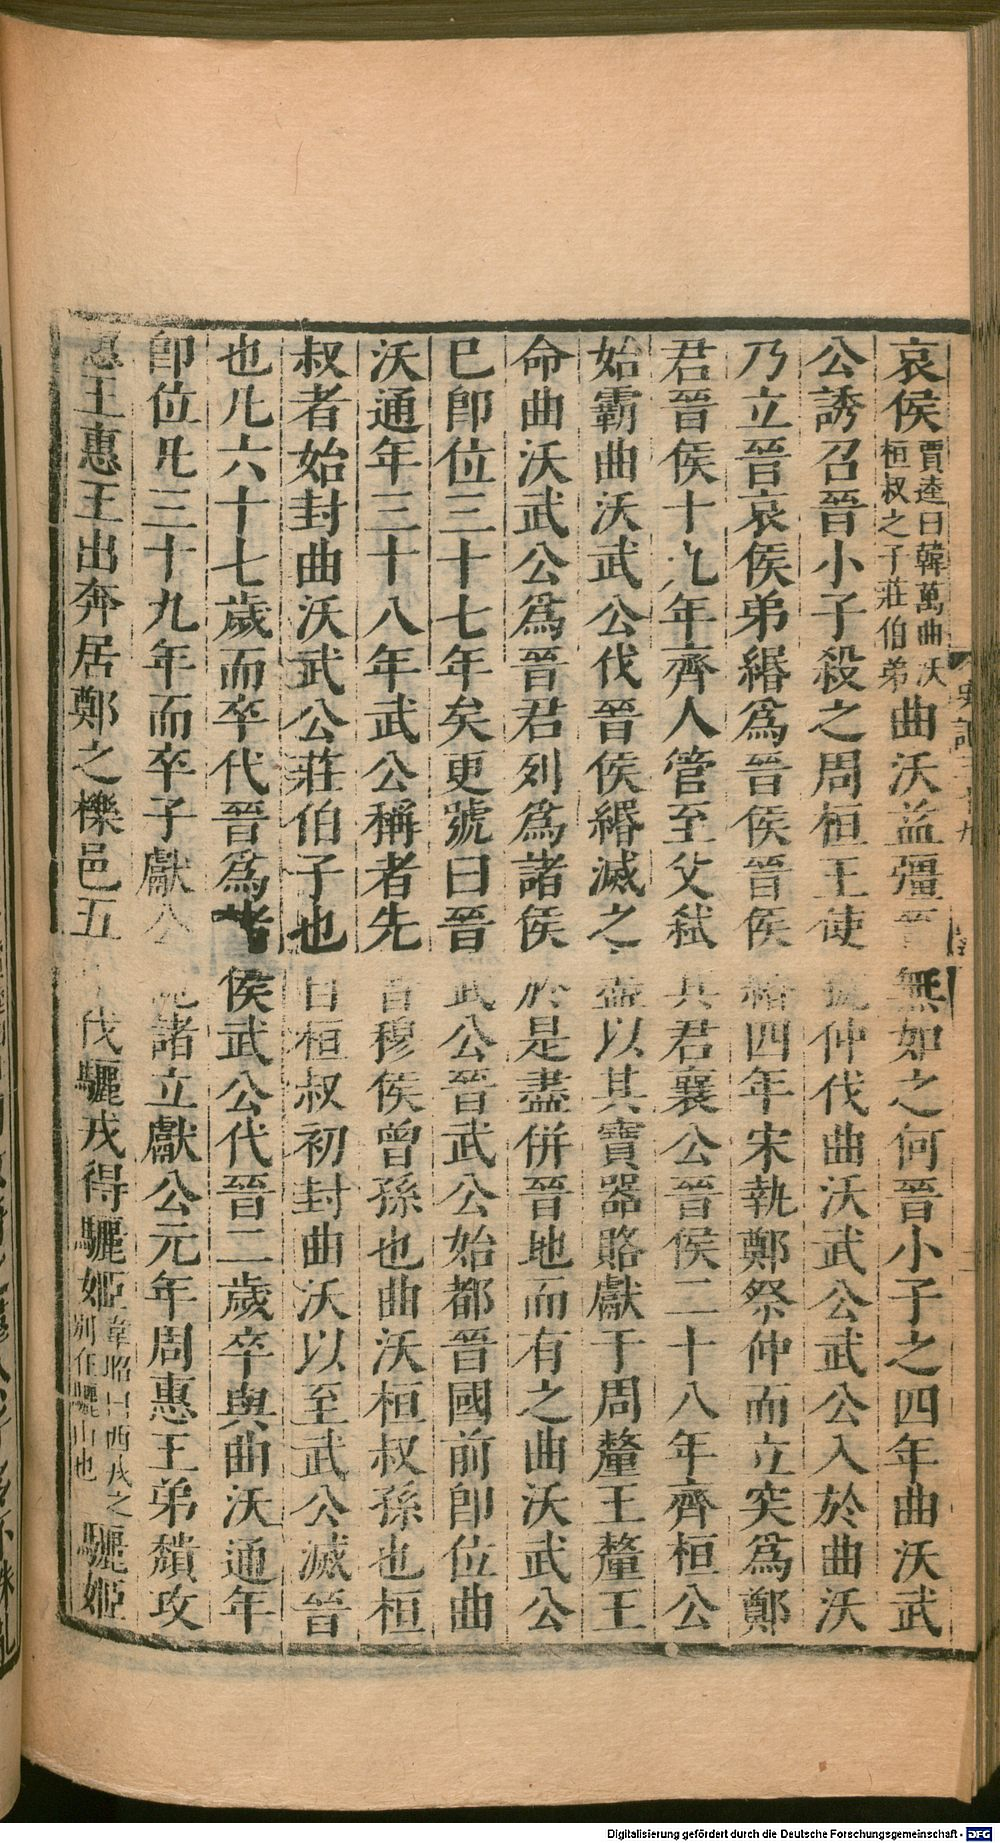 哀侯賈逵曰韓萬曲沃桓叔之子莊伯弟曲沃益彊晉無如之何晉小子之四年曲沃武
公誘召晉小子殺之周桓王使虢仲伐曲沃武公武公入於曲沃
乃立晉哀侯弟緡爲晉侯晉侯緡四年宋執鄭祭仲而立突爲鄭
君晉侯十九年齊人管至父弒其君襄公晉侯二十八年齊桓公
始霸曲沃武公伐晉侯緡滅之盡以其寶器賂獻于周釐王釐王
命曲沃武公爲晉君列爲諸侯於是盡併晉地而有之曲沃武公
巳卽位三十七年矣更號曰晉武公晉武公始都晉國前卽位曲
沃通年三十八年武公稱者先晉穆侯曾孫也曲沃桓叔孫也桓
叔者始封曲沃武公莊伯子也自桓叔初封曲沃以至武公滅晉
也凡六十七歲而卒代晉爲諸侯武公代晉二歲卒與曲沃通年
卽位凡三十九年而卒子獻公詭諸立獻公元年周惠王弟穨攻
惠王惠王出奔居鄭之櫟邑五伐驪戎得驪姬韋昭曰西戎之別在驪山也驪姬
史記三十九
Digitalisierung gefördert durch die Deutsche Forschungsgemeinschaft - DFG